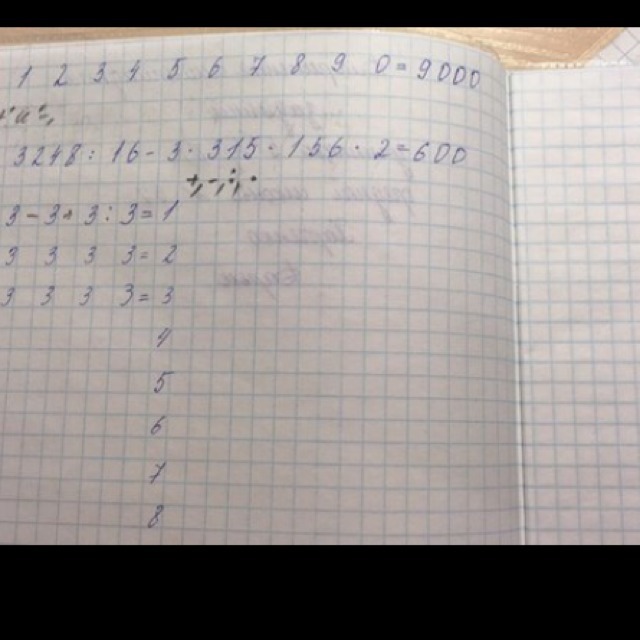 1 2 3 4 5 6 7 8 9 0 = 9000
3248 : 16 - 3 · 315 - 156 · 2 = 600
+, -, :, ·
3 - 3 + 3 : 3 = 1
3 3 3 3 = 2
3 3 3 3 = 3
4
5
6
7
8